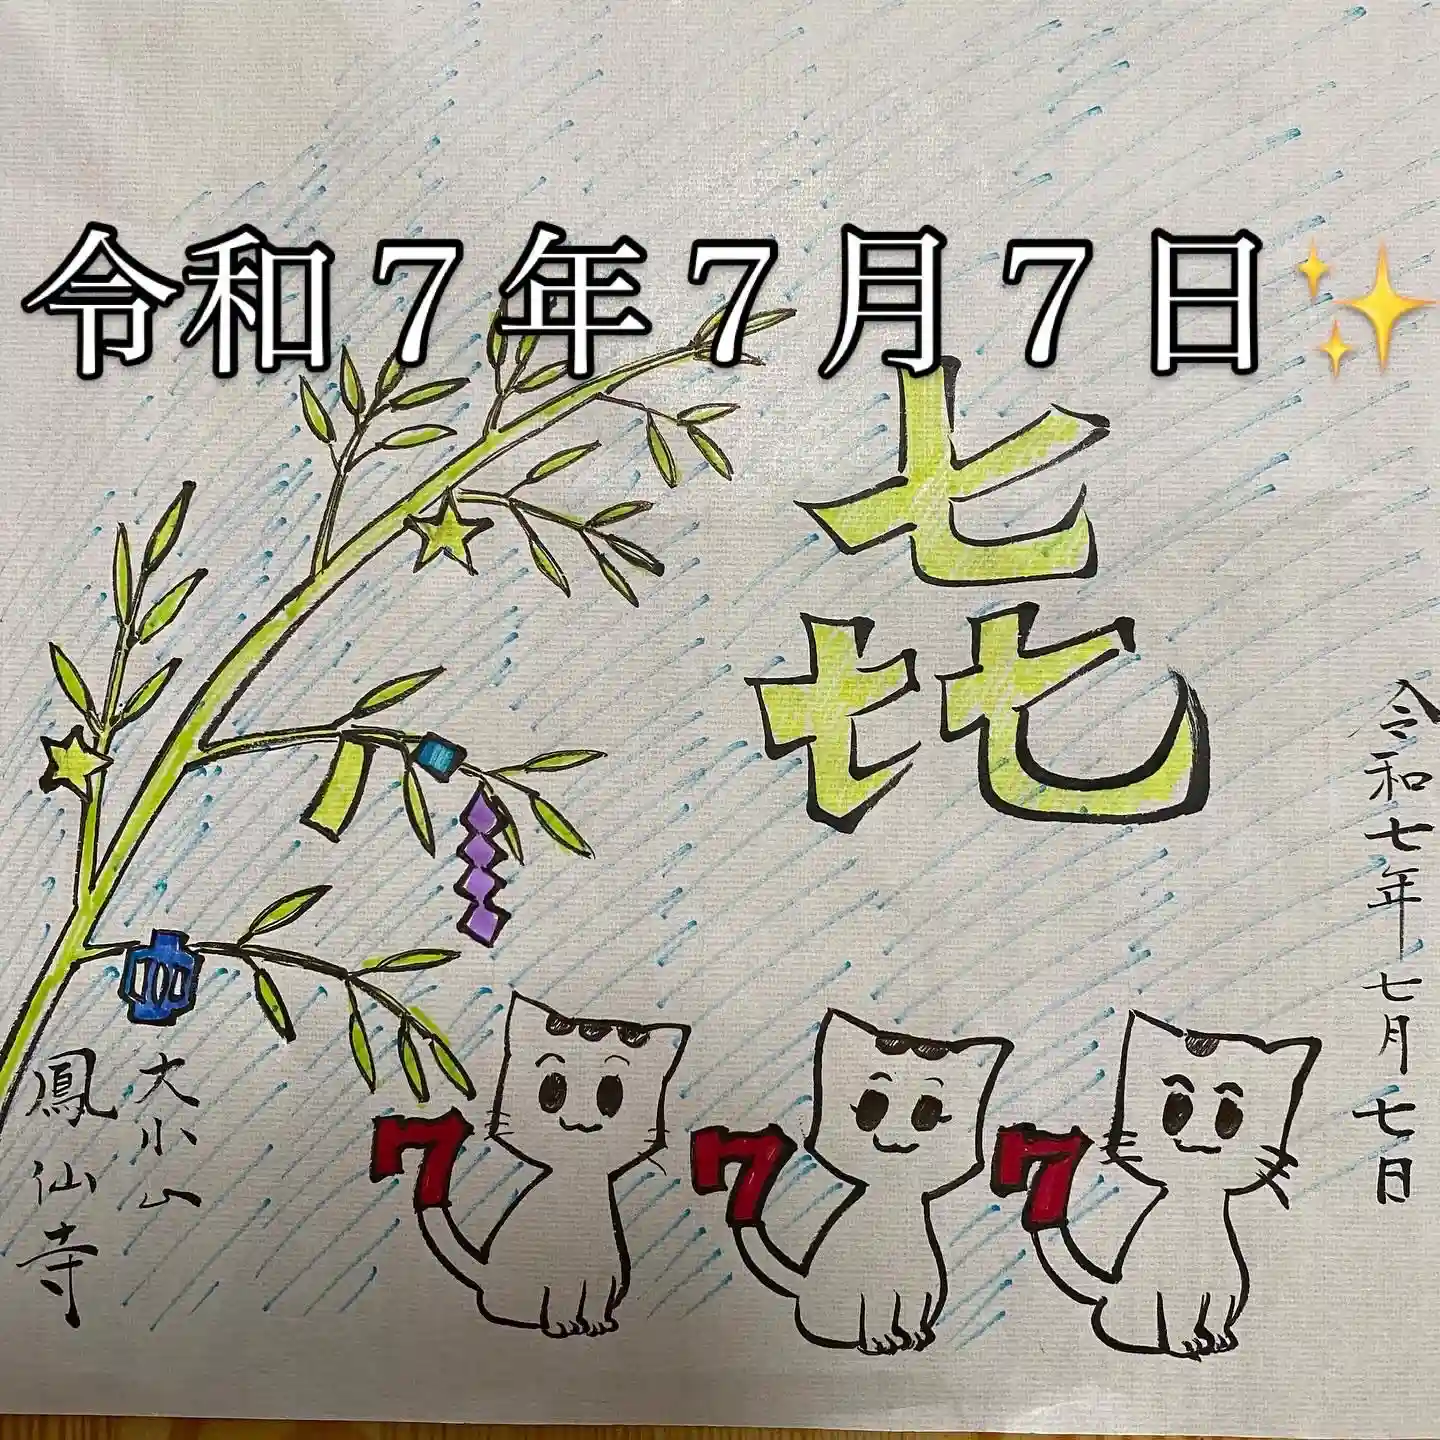 令和７年７月７日✨
㐂
令和七年七月七日
大小山
鳳仙寺
7
7
7